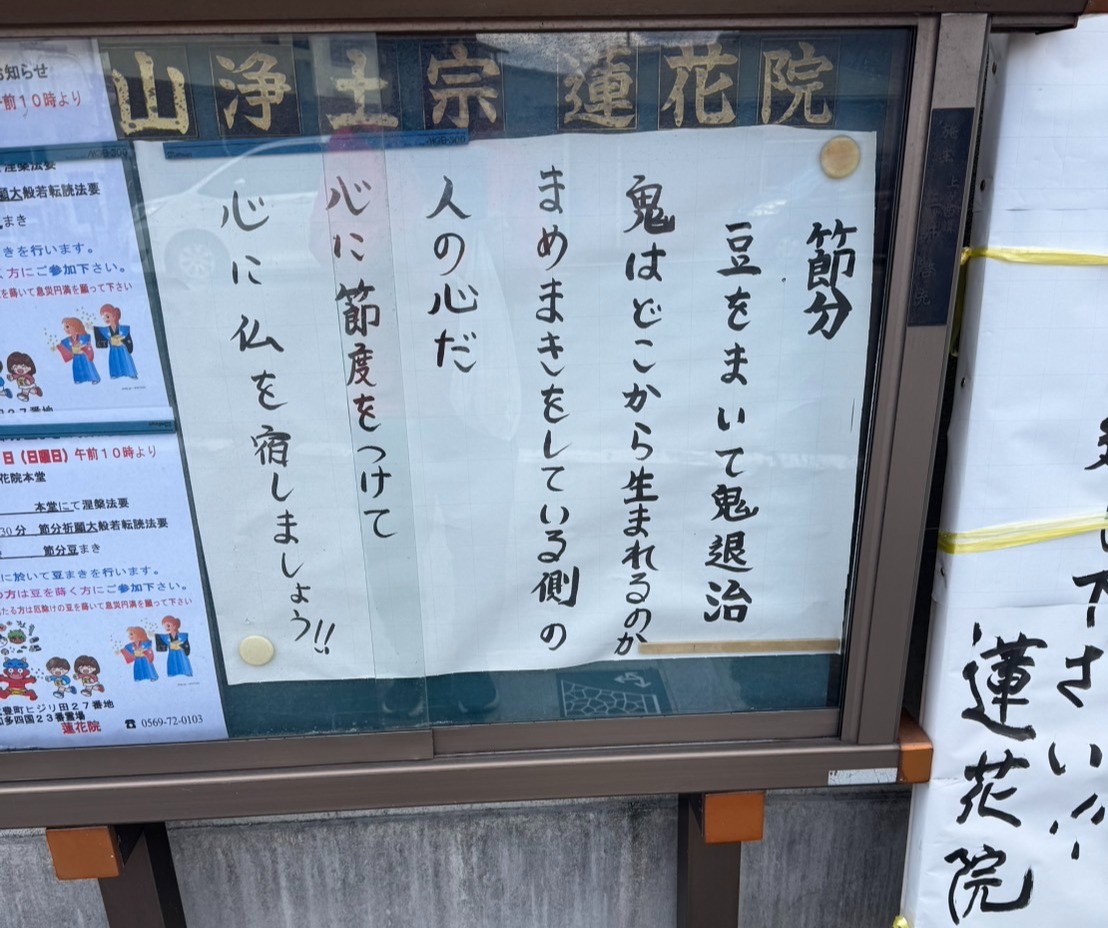 山浄土宗 蓮花院
節分
豆をまいて鬼退治
鬼はどこから生まれるのか
まめまきをしている側の
人の心だ
心に節度をつけて
心に仏を宿しましょう!!
お知らせ
午前10時より
涅槃法要
願大般若転読法要
まき
きを行います。
方にご参加下さい。
を蒔いて息災円満を願って下さい
27番地
日(日曜日)午前10時より
花院本堂
本堂にて涅槃法要
30分 節分祈願大般若転読法要
節分豆まき
に於いて豆まきを行います。
の方は豆を蒔く方にご参加下さい。
たる方は厄除けの豆を蒔いて息災円満を願って下さい
豊町ヒジリ田27番地
知多四国23番霊場
蓮花院
☎ 0569-72-0103
施主
下さい!!
蓮花院